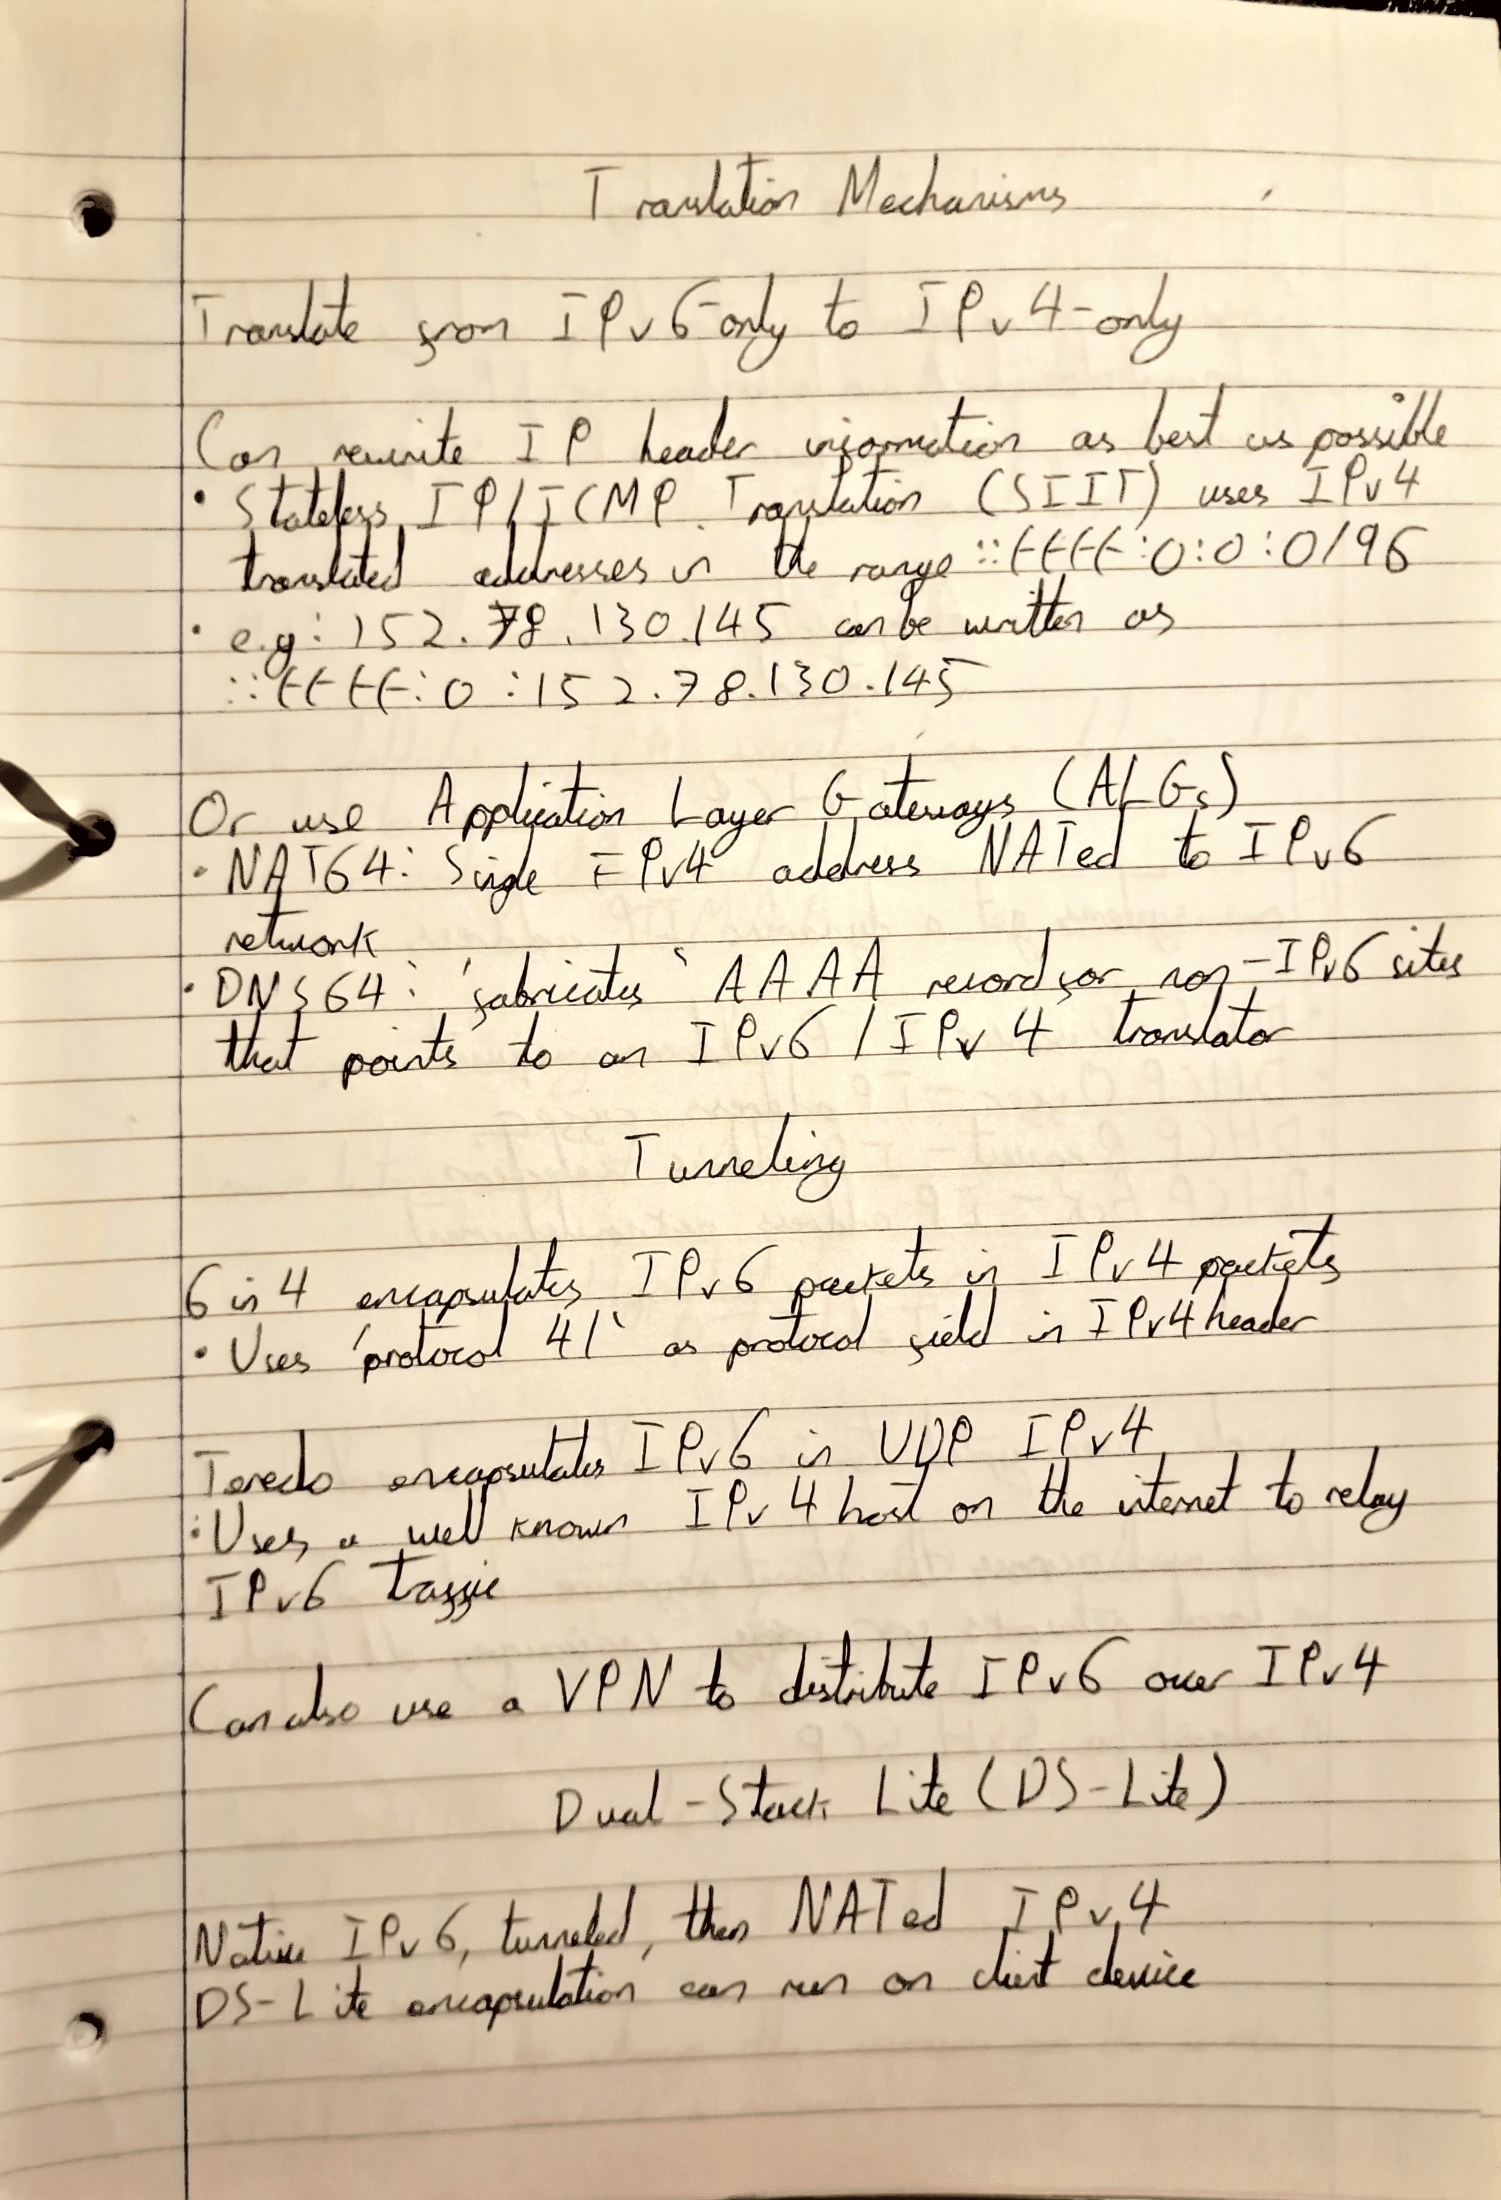 Translation Mechanisms
Translate from IPv6-only to IPv4-only
Can rewrite IP header information as best as possible
• Stateless IP/ICMP Translation (SIIT) uses IPv4
translated addresses in the range ::ffff:0:0:0/96
• e.g: 152.78.130.145 can be written as
::ffff:0:152.78.130.145
Or use Application Layer Gateways (ALGs)
• NAT64: Single IPv4 address NATed to IPv6
network
• DNS64: 'fabricates' AAAA record for non-IPv6 sites
that points to an IPv6/IPv4 translator
Tunneling
6in4 encapsulates IPv6 packets in IPv4 packets
• Uses 'protocol 41' as protocol field in IPv4 header
Teredo encapsulates IPv6 in UDP IPv4
• Uses a well known IPv4 host on the internet to relay
IPv6 traffic
Can also use a VPN to distribute IPv6 over IPv4
Dual-Stack Lite (DS-Lite)
Native IPv6, tunneled, then NATed IPv4
DS-Lite encapsulation can run on client device